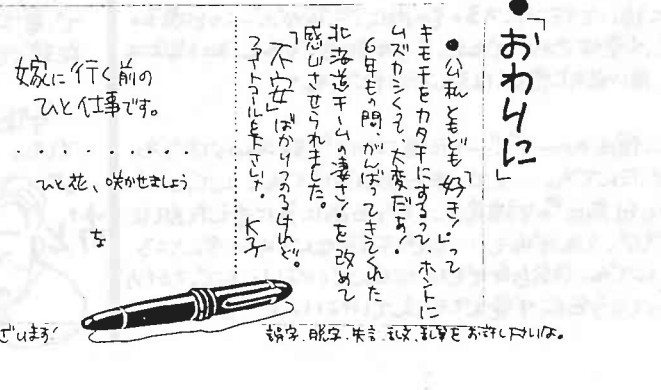 「おわりに」
●公私ともども「好き！」って
キモチをカタチにするって、ホントに
ムズカシくって、大変だぁ！
6年もの間、がんばってきてくれた
北海道チームの凄さを改めて
感じさせられました。
「不安」ばかりつのるけれど。
ファイトコールを下さい！ K子
嫁に行く前の
ひと仕事です。
・・・・・・・・
ひと花、咲かせましょう
な
ざいます！
誤字、脱字、失言、乱文、乱筆をお許し下さいな。